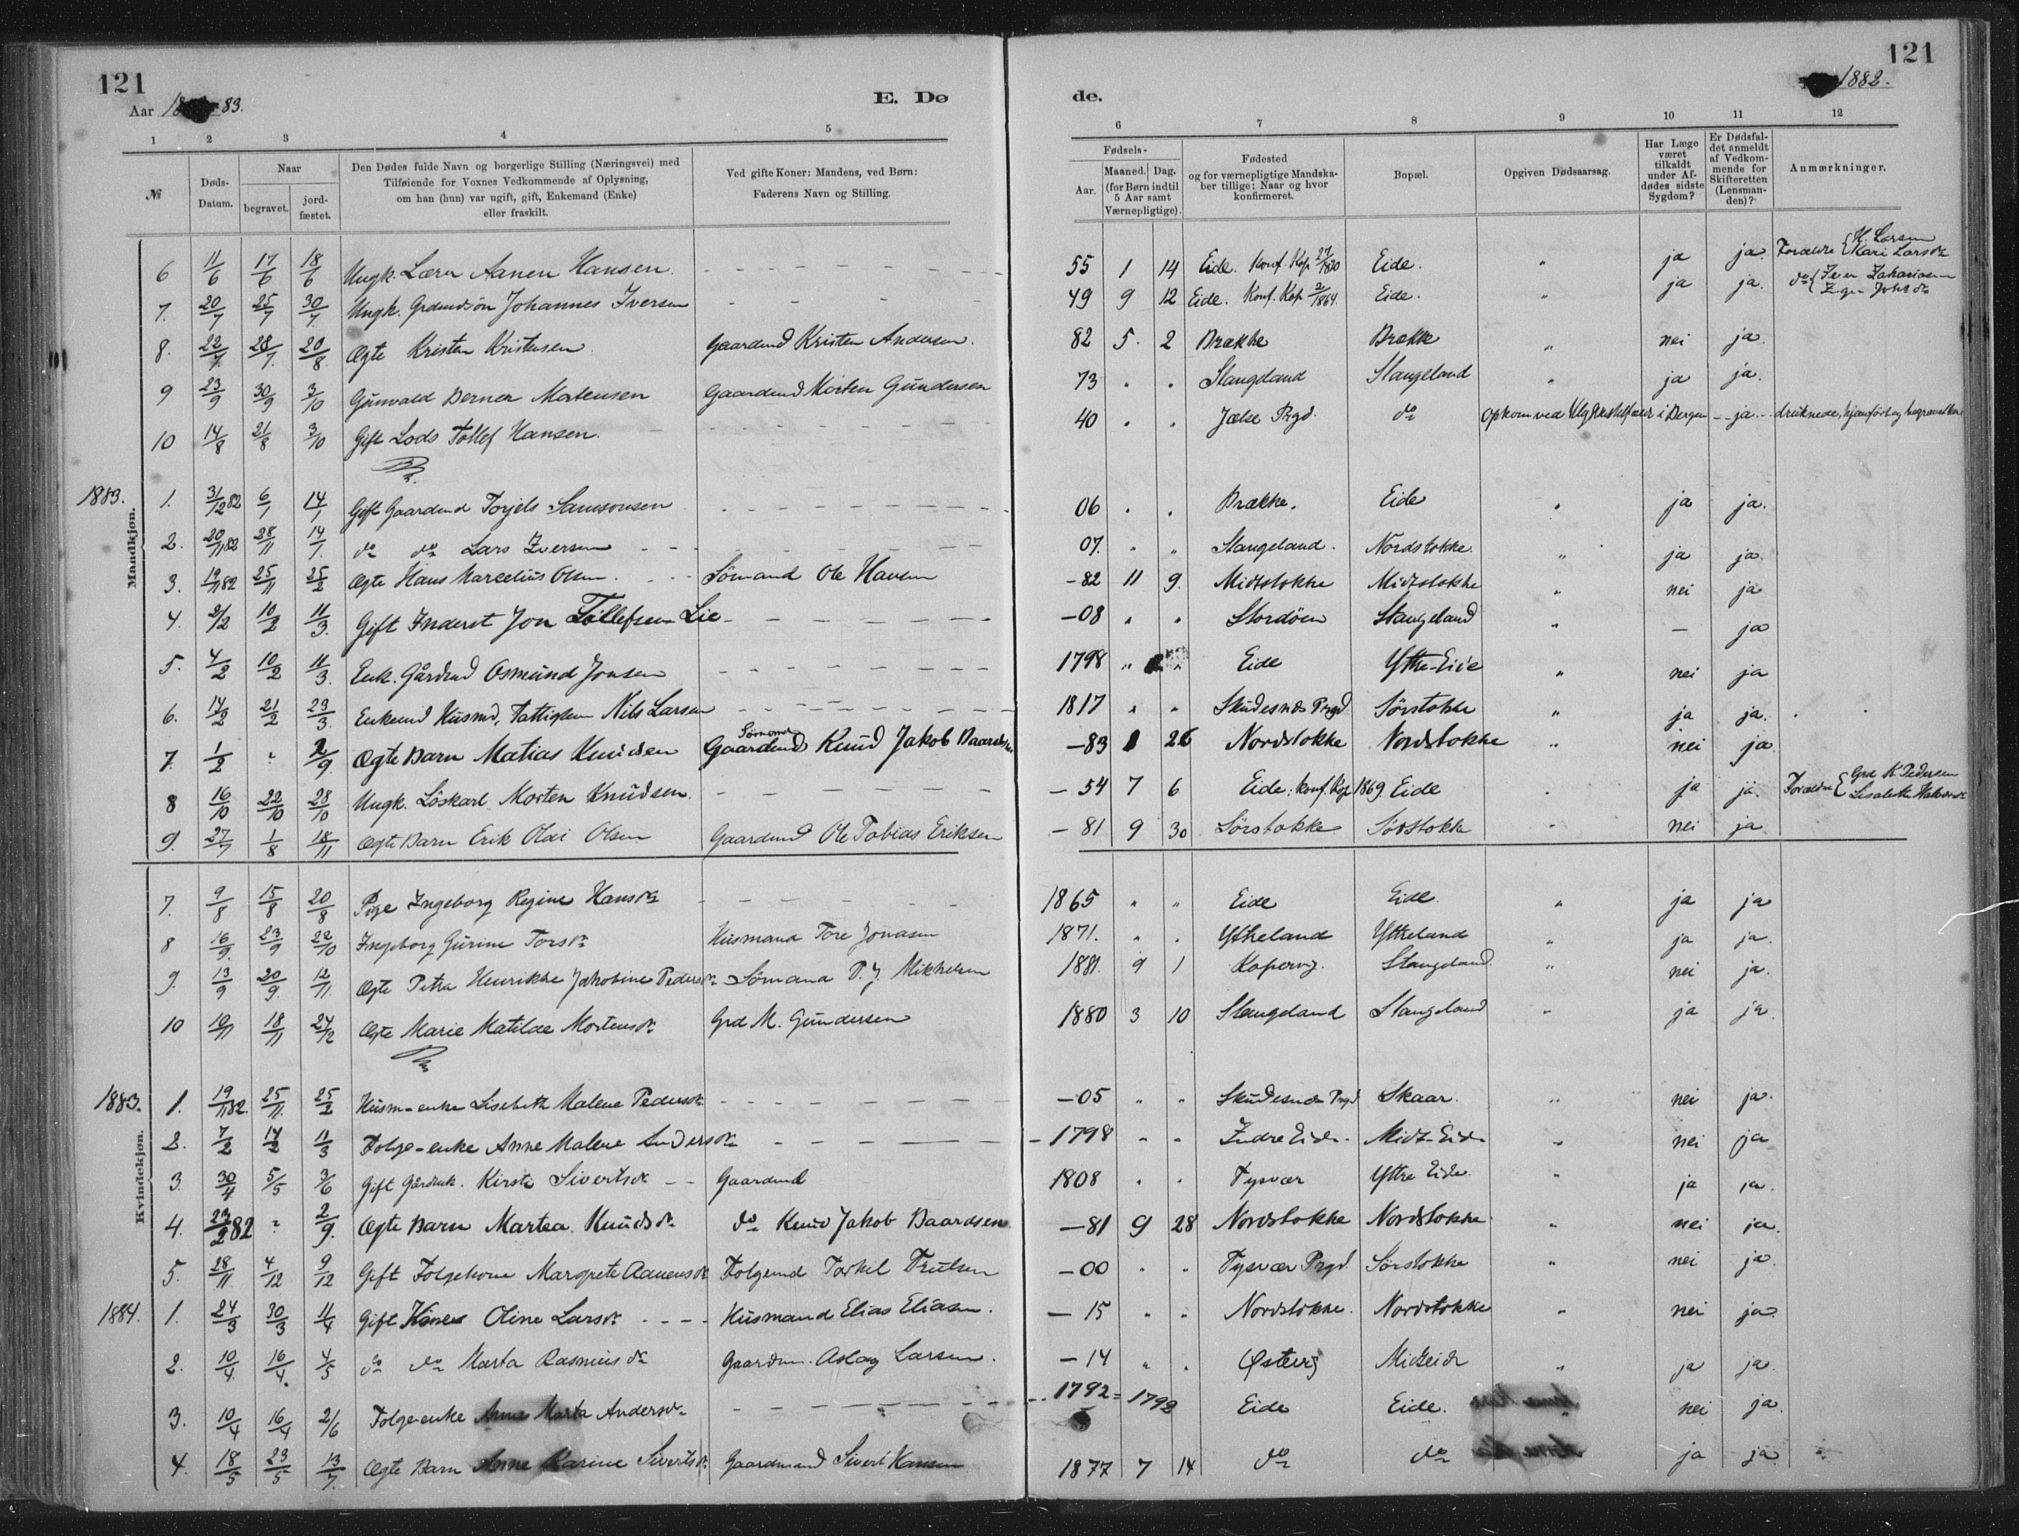 121
121
Aar 18 83.
E. Dø
de.
1882.
1 2 3 4 5 6 7 8 9 10 11 12
№
Døds-Datum.
Naar
begravet.
jord-fæstet.
Den Dødes fulde Navn og borgerlige Stilling (Næringsvei) med
Tilføiende for Voxnes Vedkommende af Oplysning,
om han (hun) var ugift, gift, Enkemand (Enke)
eller fraskilt.
Ved gifte Koner: Mandens, ved Børn:
Faderens Navn og Stilling.
Fødsels-
Aar.
Maaned.
Dag.
(for Børn indtil
5 Aar samt
Værnepligtige).
Fødested
og for værnepligtige Mandska-
ber tillige: Naar og hvor
konfirmeret.
Bopæl.
Opgiven Dødsaarsag.
Har Læge
været
tilkaldt
under Af-
dødes sidste
Sygdom?
Er Dødsfal-
det anmeldt
af Vedkom-
mende for
Skifteretten
(Lensman-
den)?
Anmærkninger.
Mandkjøn.
6 11/6 17/6 18/6 Ungk. Lærer Aanen Hansen. 55 1 14 Eide. Konf. Kop 1870 Eide. " ja ja. Forældre { H. Larsen Kari Larsdr
7. 20/7 25/7 30/7 Ungk. Grdmdsøn Johannes Iversen 49 9 12 Eide. Konf. Kop 1864. Eide. " ja ja. do { Iver Zakariasen
8. 22/7 28/7 20/8 Ægte Kristen Kristensen Gaardmd Kristen Andersen. 82 5. 2 Brække Brække " nei ja.
9 23/9 30/9 3/10 Gunvald Berner Mortensen Gaardmd Morten Gundersen 73 " " Stangeland Stangeland " ja ja.
10 14/8 21/8 3/10 Gift Lods Tollef Hansen. 40 " " Jælse Prgd. do i Bergen - ja - druknede, hjemført og begravet her
1883. 1. 31/12 82 6/1 14/1 Gift Gaardmd Torjels Samsonsen 06 " " Brække. Eide " ja ja.
2. 20/11 82 28/11 14/1 do do Lars Iversen 07. " " Stangeland. Nordstokke. " ja ja.
3. 19/11 82 25/11 25/2 Ægte Hans Marcelius Olsen. Sømand Ole Hansen -82 11 9. Midtstokke Midtstokke " nei ja
4. 2/2 10/2 11/3 Gift Inderst Jon Tollefsen Lie -08 " " Stordøen Stangeland " - ja
5. 4/2 10/2 11/3 Enk. Gårdmd Osmund Jonsen 1798 " " Eide Ytre-Eide " nei ja
6. 14/2 21/2 23/3 Enkemd Husmd, Fattiglem Nils Larsen 1817 " " Skudesnes Prgd. Sørstokke " ja ja.
7. 1/2 " 2/9 Ægte Barn Matias Knudsen Sømand Gaardmd Knud Jakob Baardsen -83 1 26 Nordstokke Nordstokke " nei ja.
8 16/10 22/10 28/10 Ungk. Løskarl Morten Knudsen. -54 7 6 Eide: konf. Kop 1869. Eide " ja ja. Forældre { Grd K Pedersen
9. 27/7 1/8 18/11 Ægte Barn Erik Olai Olsen Gaardmd Ole Tobias Eriksen -81 9 30 Sørstokke Sørstokke " nei ja
Kvindekjøn.
7. 9/8 15/8 20/8 Pige Ingeborg Regine Hansdr 1865 " " Eide Eide. " ja ja
8 16/9. 23/9 22/10 Ingeborg Gurine Torsdr Husmand Tore Jonasen 1871. " " Ytreland Ytreland " ja ja.
9. 13/9 20/9. 12/11. Ægte Petra Henrikke Jakobine Pedersdr Sømand P. J. Mikkelsen 1881. 9 1 Kopervig. Stangeland. " nei ja.
10 10/11 18/11 24/12 Ægte Marie Matilde Mortensdr Grd M. Gundersen 1880 3 10 Stangeland Stangeland " ja ja.
1883. 1. 19/11 82. 25/11. 25/2 Husm-enke Lisebeth Malene Pedersdr -05 " " Skudesnes Prgd Skaar. " nei ja.
2. 7/2 14/2 11/3 Folge-enke Anne Malene Andersdr -1798 " " Indre Eide. Midt-Eide " nei ja
3. 30/4 5/5 3/6 Gift Gårdmk. Kirste Sivertsdr Gaardmd 1808 " " Tysvær Ytre Eide. " ja ja.
4. 23/2 82 " 2/9. Ægte Barn Martea Knudsdr do Knud Jakob Baardsen -81 9 28 Nordstokke Nordstokke. " nei ja.
5. 28/11 4/12 9/12 Gift Folgekone Margrete Aanensdr Folgemd Torkel -00 " " Tysvær Prgd Sørstokke " nei ja.
1884. 1. 24/3 30/3 11/4 Gift Kone Oline Larsdr Husmand Elias Eliasen. -15 " " Nordstokke. Nordstokke " nei ja.
2. 10/4 16/4. 4/5 do do Marta Rasmusdr Gaardm. Aslag Larsen. -14 " " Østervig Midteide " ja ja.
3. 10/4 16/4 2/6 Folge-enke Anne Marta Andersdr 1792 = 1792 Eide Eide. nei ja.
4. 18/5 23/5 13/7. Ægte Barn Anne Karine Sivertsdr Gaardmand Sivert Hansen 1877 7 14 do do ja ja. "